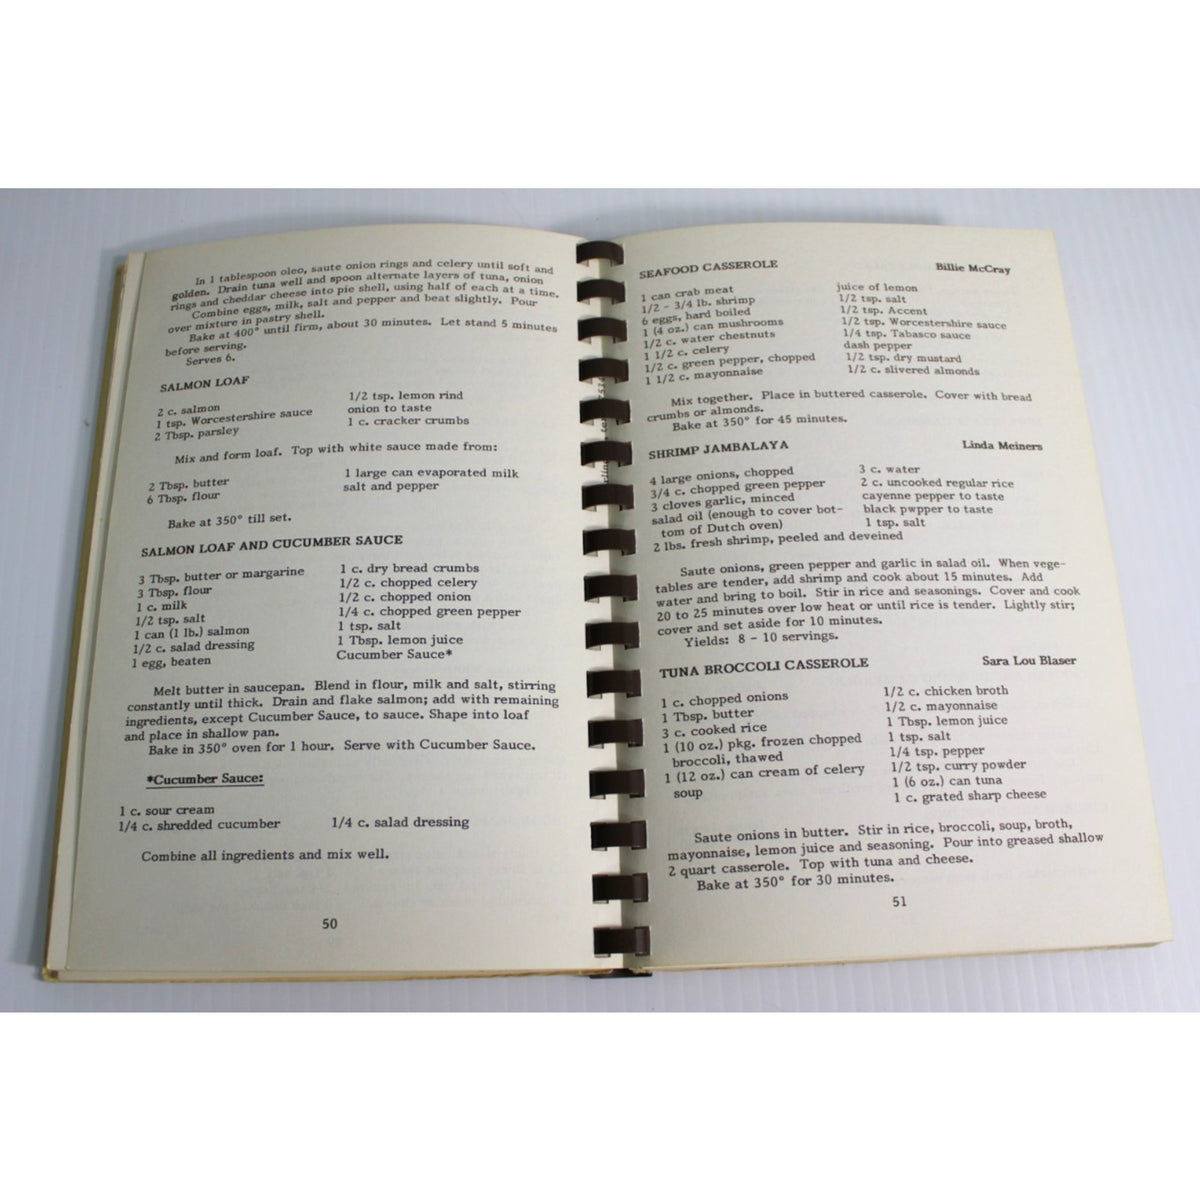 In 1 tablespoon oleo, saute onion rings and celery until soft and
golden. Drain tuna well and spoon alternate layers of tuna, onion
rings and cheddar cheese into pie shell, using half of each at a time.
Combine eggs, milk, salt and pepper and beat slightly. Pour
over mixture in pastry shell.
Bake at 400° until firm, about 30 minutes. Let stand 5 minutes
before serving.
Serves 6.
SALMON LOAF
2 c. salmon
1 tsp. Worcestershire sauce
2 Tbsp. parsley
1/2 tsp. lemon rind
onion to taste
1 c. cracker crumbs
Mix and form loaf. Top with white sauce made from:
2 Tbsp. butter
6 Tbsp. flour
1 large can evaporated milk
salt and pepper
Bake at 350° till set.
SALMON LOAF AND CUCUMBER SAUCE
3 Tbsp. butter or margarine
3 Tbsp. flour
1 c. milk
1/2 tsp. salt
1 can (1 lb.) salmon
1/2 c. salad dressing
1 egg, beaten
1 c. dry bread crumbs
1/2 c. chopped celery
1/2 c. chopped onion
1/4 c. chopped green pepper
1 tsp. salt
1 Tbsp. lemon juice
Cucumber Sauce*
Melt butter in saucepan. Blend in flour, milk and salt, stirring
constantly until thick. Drain and flake salmon; add with remaining
ingredients, except Cucumber Sauce, to sauce. Shape into loaf
and place in shallow pan.
Bake in 350° oven for 1 hour. Serve with Cucumber Sauce.
*Cucumber Sauce:
1 c. sour cream
1/4 c. shredded cucumber
1/4 c. salad dressing
Combine all ingredients and mix well.
50
SEAFOOD CASSEROLE Billie McCray
1 can crab meat
1/2 - 3/4 lb. shrimp
6 eggs, hard boiled
1 (4 oz.) can mushrooms
1/2 c. water chestnuts
1 1/2 c. celery
1/2 c. green pepper, chopped
1 1/2 c. mayonnaise
juice of lemon
1/2 tsp. salt
1/2 tsp. Accent
1/2 tsp. Worcestershire sauce
1/4 tsp. Tabasco sauce
dash pepper
1/2 tsp. dry mustard
1/2 c. slivered almonds
Mix together. Place in buttered casserole. Cover with bread
crumbs or almonds.
Bake at 350° for 45 minutes.
SHRIMP JAMBALAYA Linda Meiners
4 large onions, chopped
3/4 c. chopped green pepper
3 cloves garlic, minced
salad oil (enough to cover bot-
tom of Dutch oven)
2 lbs. fresh shrimp, peeled and deveined
3 c. water
2 c. uncooked regular rice
cayenne pepper to taste
black pwpper to taste
1 tsp. salt
Saute onions, green pepper and garlic in salad oil. When vege-
tables are tender, add shrimp and cook about 15 minutes. Add
water and bring to boil. Stir in rice and seasonings. Cover and cook
20 to 25 minutes over low heat or until rice is tender. Lightly stir;
cover and set aside for 10 minutes.
Yields: 8 - 10 servings.
TUNA BROCCOLI CASSEROLE Sara Lou Blaser
1 c. chopped onions
1 Tbsp. butter
3 c. cooked rice
1 (10 oz.) pkg. frozen chopped
broccoli, thawed
1 (12 oz.) can cream of celery
soup
1/2 c. chicken broth
1/2 c. mayonnaise
1 Tbsp. lemon juice
1 tsp. salt
1/4 tsp. pepper
1/2 tsp. curry powder
1 (6 oz.) can tuna
1 c. grated sharp cheese
Saute onions in butter. Stir in rice, broccoli, soup, broth,
mayonnaise, lemon juice and seasoning. Pour into greased shallow
2 quart casserole. Top with tuna and cheese.
Bake at 350° for 30 minutes.
51